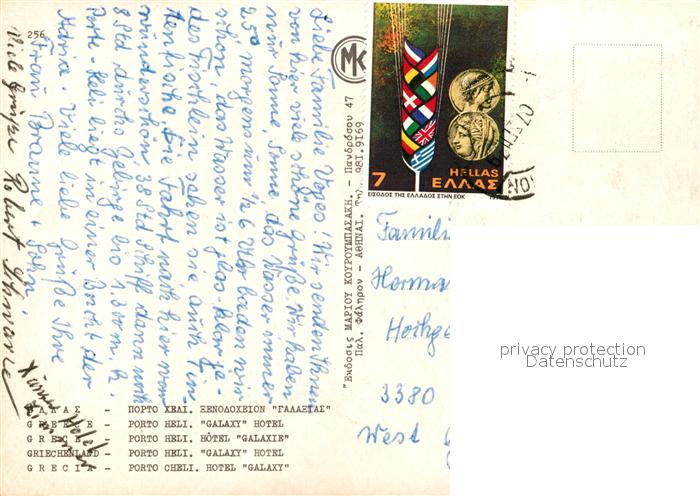 256
Liebe Familie Vages! Wir senden Ihnen
von hier viele schöne Grüße. Wir haben
nur Sonne, Sonne, das Wasser immer
25° morgens um ½ 6 Uhr baden wir
schon, das Wasser ist glasklar ja
des Fischlein sehen sie auch
Die Fahrt nach hier war
wunderschön 38 Std Schiff dann noch
8 Std durchs Gebirge bis 1.300 m. h.
Porto-Heli liegt in einer Bucht der
Adria. Viele liebe Grüße Ihre
Frau Braune + Sohn.
Viele Grüße Robert
ΕΛΛΑΣ - ΠΟΡΤΟ ΧΕΛΙ. ΞΕΝΟΔΟΧΕΙΟΝ "ΓΑΛΑΞΙΑΣ"
GREECE - PORTO HELI. "GALAXY" HOTEL
GRECE - PORTO HELI. HÔTEL "GALAXIE"
GRIECHENLAND - PORTO HELI. "GALAXY" HOTEL
GRECIA - PORTO CHELI. HOTEL "GALAXY"
"Εκδοσις ΜΑΡΙΟΥ ΚΟΥΡΟΥΜΠΑΣΑΚΗ. - Πανδρόσου 47
Παλ. Φάληρον - ΑΘΗΝΑΙ. 981.9169
MK
7
HELLAS
ΕΛΛΑΣ
ΕΙΣΟΔΟΣ ΤΗΣ ΕΛΛΑΔΟΣ ΣΤΗΝ ΕΟΚ
Famili
Herma
3380
West
privacy protection
Datenschutz